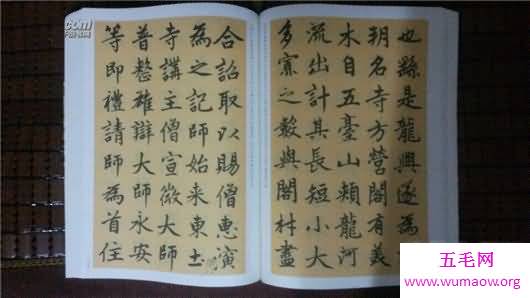 也繇是龍興遂為
朔名寺方營閣有美
木自五臺山頰龍河
流出計其長短小大
多寡之數與閣材盡
合詔取以賜僧惠演
為之記師始来東土
寺講主僧宣微大師
普整雄辯大師永安
等即禮請師為首住
.com
五毛网
www.wumaow.org